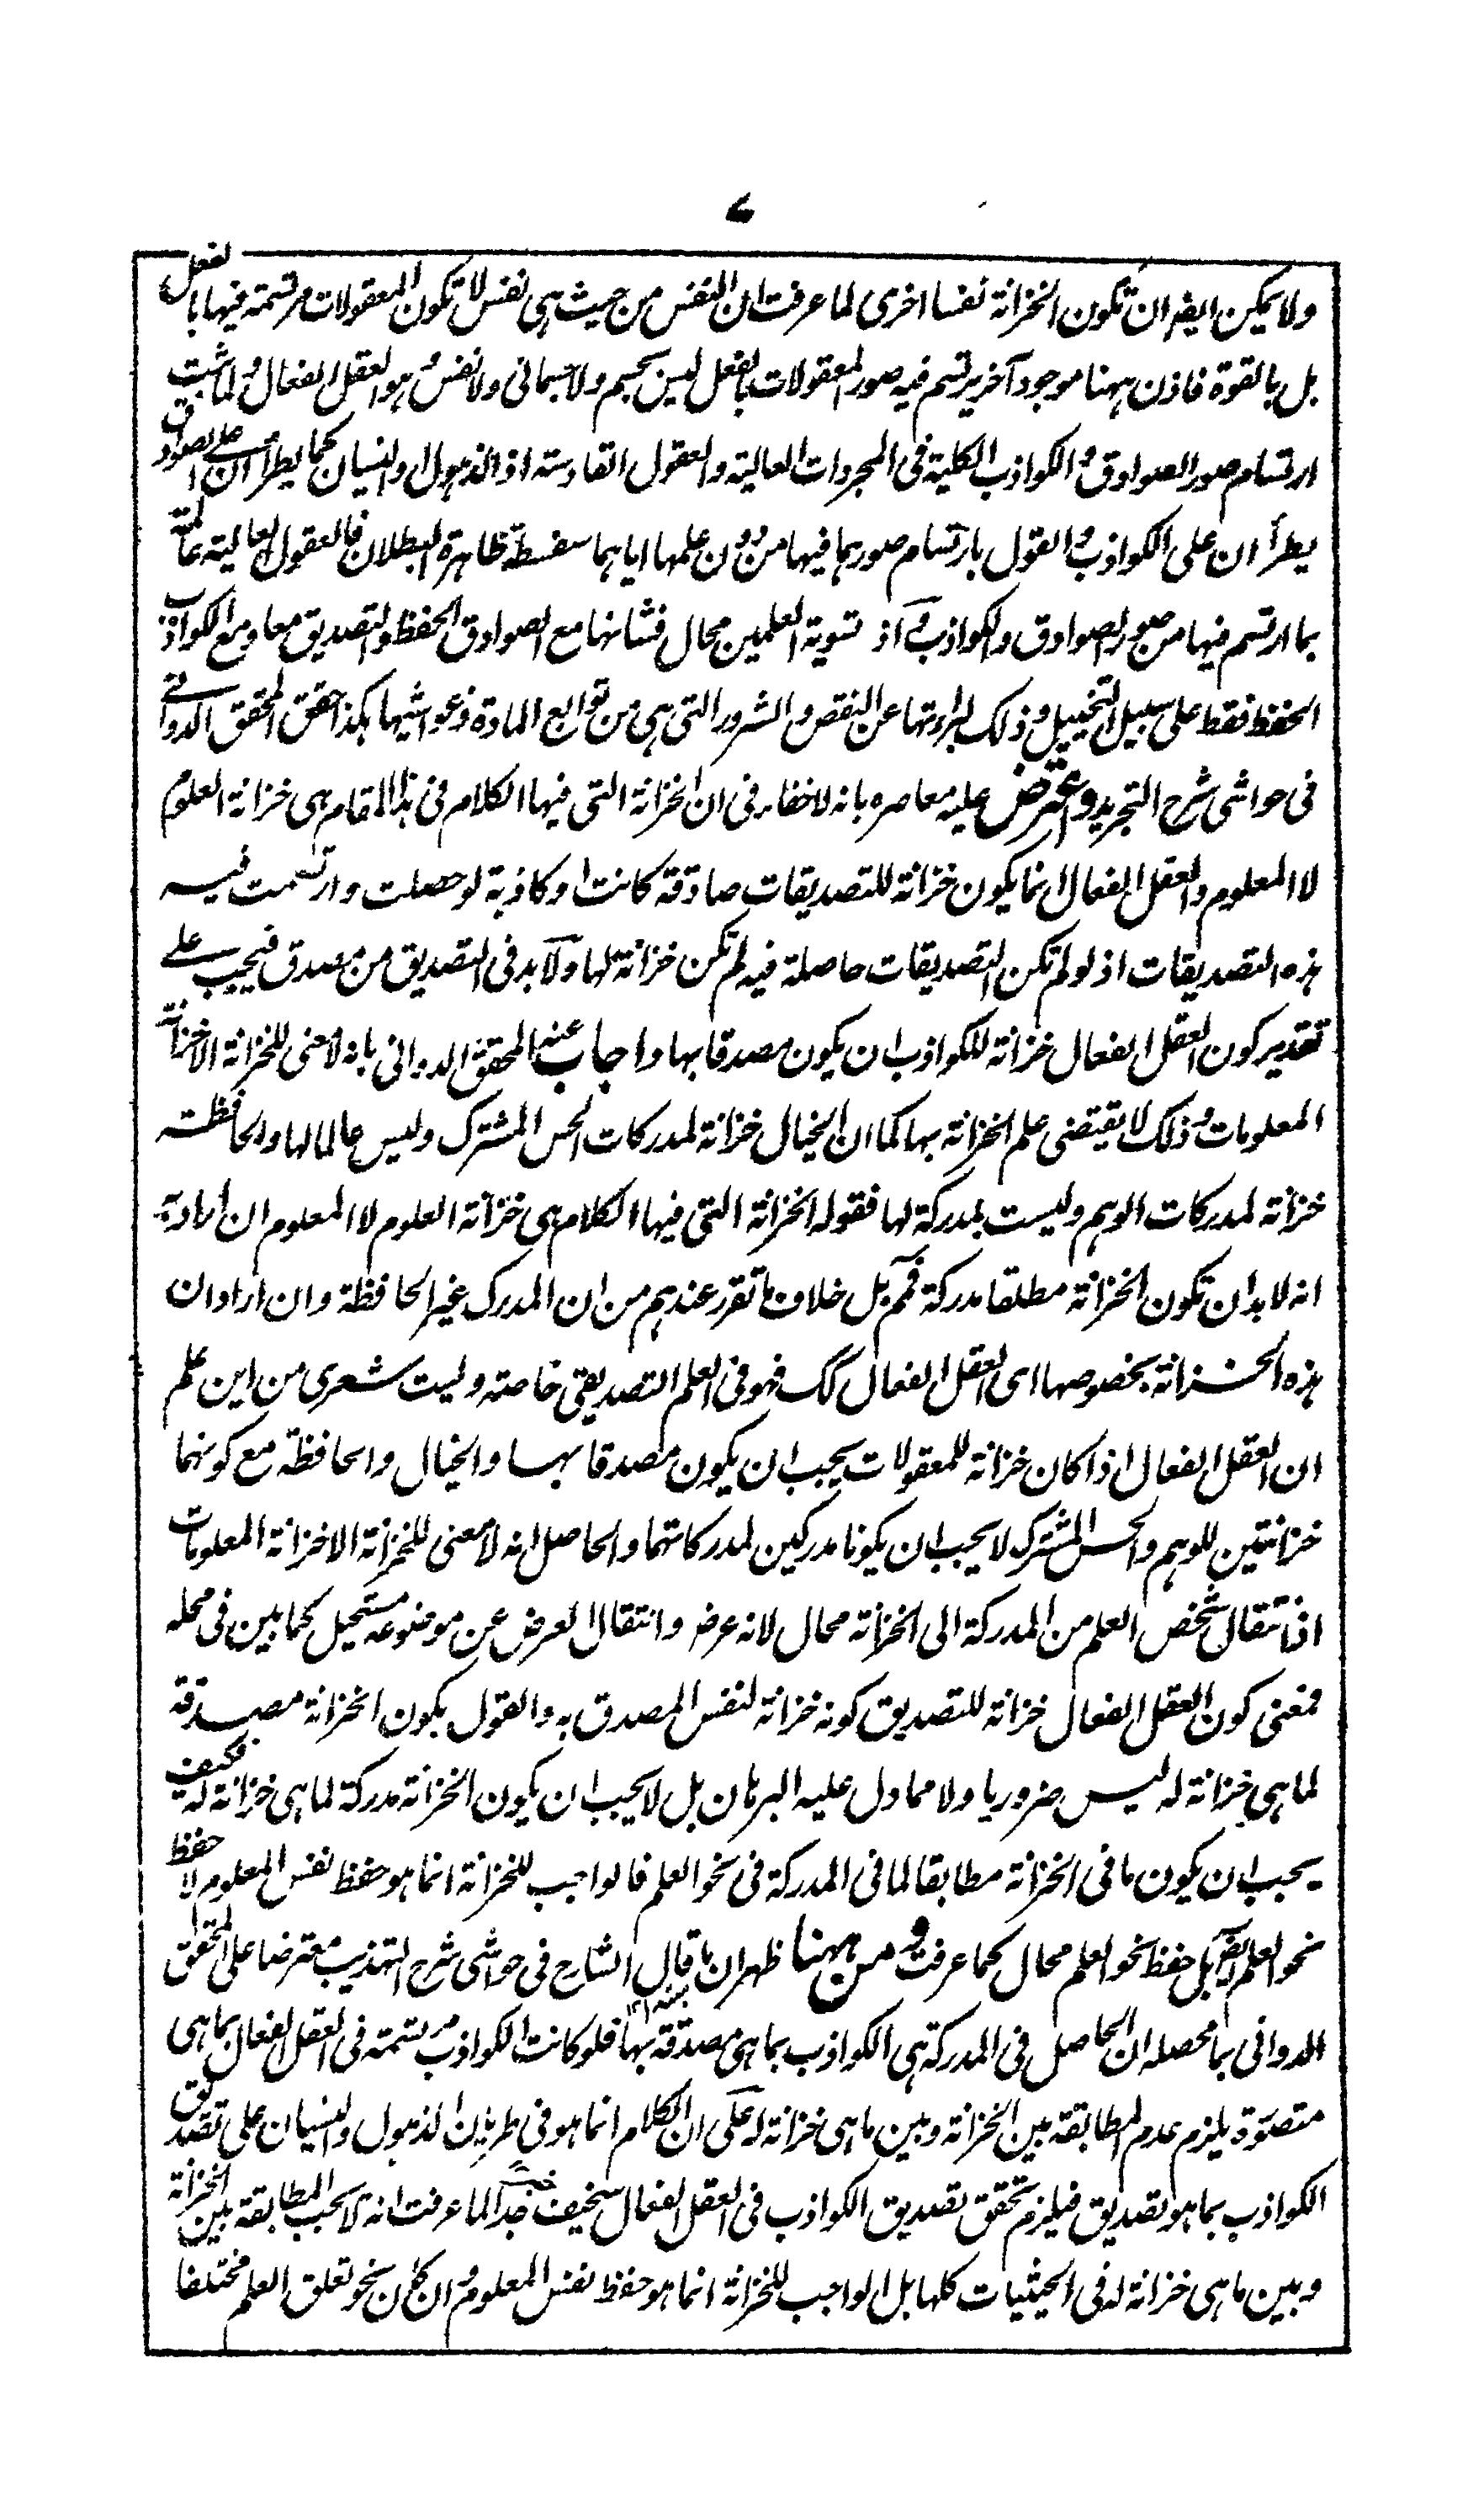 ۷
ولا يمكن ايضا ان تكون الخزانة نفسا اخرى لما عرفت ان النفس من حيث هى نفس لا تكون المعقولات مرتسمة فيها بالفعل
بل بالقوة فاذن ههنا موجود آخر يرتسم فيه صور المعقولات بالفعل ليس بجسم ولا جسمانى ولا نفس وهو العقل الفعال ولما ثبت
ارتسام صور الصوادق والكواذب الكلية فى المجردات العالية والعقول القادسة اذ الذهول والنسيان كما يطرأان على الصوادق
يطرأان على الكواذب والقول بارتسام صورهما فيها من دون علمها اياهما سفسطة ظاهرة البطلان فالعقول العالية عالمة
بما ارتسم فيها من صور الصوادق والكواذب اذ تسوية العلمين محال فشانها مع الصوادق الحفظ والتصديق معا ومع الكواذب
الحفظ فقط على سبيل التخييل وذلك لبراءتها عن النقص والشرور التى هى من توابع المادة وغواشيها هكذا حقق المحقق الدوانى
فى حواشى شرح التجريد واعترض عليه معاصره بانه لا خفاء فى ان الخزانة التى فيها الكلام فى هذا المقام هى خزانة العلوم
لا المعلوم والعقل الفعال انما يكون خزانة للتصديقات صادقة كانت او كاذبة لو حصلت وارتسمت فيه
هذه التصديقات اذ لو لم تكن التصديقات حاصلة فيه لم تكن خزانة لها ولا بد فى التصديق من مصدق فيجب على
تقدير كون العقل الفعال خزانة للكواذب ان يكون مصدقا بها واجاب عنه المحقق الدوانى بانه لا معنى للخزانة الا خزانة
المعلومات وذلك لا يقتضى علم الخزانة بها كما ان الخيال خزانة لمدركات الحس المشترك وليس عالما لها والحافظة
خزانة لمدركات الوهم وليست بمدركة لها فقوله الخزانة التى فيها الكلام هى خزانة العلوم لا المعلوم ان اراد به
انه لا بد ان تكون الخزانة مطلقا مدركة فمم بل خلاف ما تقرر عندهم من ان المدرك غير الحافظة وان اراد ان
هذه الخزانة بخصوصها اى العقل الفعال كك فهو فى العلم التصديقى خاصة وليت شعرى من اين علم
ان العقل الفعال اذا كان خزانة للمعقولات يجب ان يكون مصدقا بها والخيال والحافظة مع كونهما
خزانتين للوهم والحس المشترك لا يجب ان يكونا مدركين لمدركاتهما والحاصل انه لا معنى للخزانة الا خزانة المعلومات
اذ انتقال شخص العلم من المدركة الى الخزانة محال لانه عرض وانتقال العرض عن موضوعه مستحيل كما بين فى محله
فمعنى كون العقل الفعال خزانة للتصديق كونه خزانة لنفس المصدق به والقول بكون الخزانة مصدقة
لما هى خزانة له ليس ضروريا ولا مما دل عليه البرهان بل لا يجب ان يكون الخزانة مدركة لما هى خزانة له فكيف
يجب ان يكون ما فى الخزانة مطابقا لما فى المدركة فى نحو العلم فالواجب للخزانة انما هو حفظ نفس المعلوم لا حفظ
نحو العلم ايض بل حفظ نحو العلم محال كما عرفت ومن ههنا ظهر ان ما قال الشارح فى حواشى شرح التهذيب معترضا على المحقق
الدوانى بما محصله ان الحاصل فى المدركة هى الكواذب بما هى مصدقة بها فلو كانت الكواذب مرتسمة فى العقل الفعال بما هى
متصورة يلزم عدم المطابقة بين الخزانة وبين ما هى خزانة له على ان الكلام انما هو فى طريان الذهول والنسيان على تصديق
الكواذب بما هو تصديق فيلزم تحقق تصديق الكواذب فى العقل الفعال سخيف جدا لما عرفت انه لا يجب المطابقة بين الخزانة
وبين ما هى خزانة له فى الحيثيات كلها بل الواجب للخزانة انما هو حفظ نفس المعلوم وان كان نحو تعلق العلم مختلفا